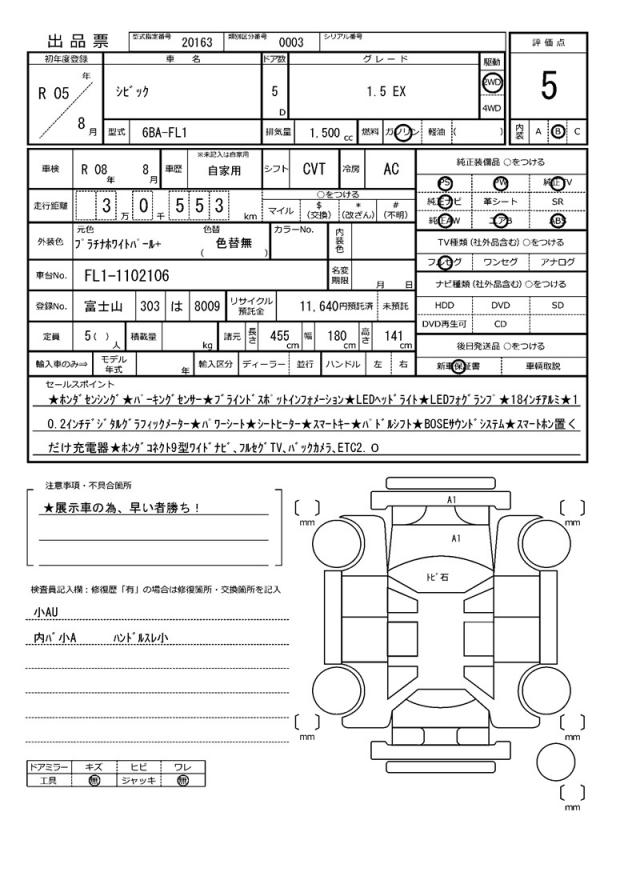 出品票 型式指定番号 20163 類別区分番号 0003 シリアル番号
評価点
5
内装 A B C
初年度登録 車名 ドア数 グレード 駆動
R 05 年 8 月
シビック 5 D 1.5 EX 2WD 4WD
型式 6BA-FL1 排気量 1.500 cc 燃料 ガソリン 軽油 ( )
車検 R 08 年 8 月 車歴 ※未記入は自家用 自家用 シフト CVT 冷房 AC
走行距離 3 万 0 千 553 km ○をつける
マイル $(交換) *(改ざん) #(不明)
外装色 元色 プラチナホワイトパール+ 色替 色替無 ( ) カラーNo. 内装色
車台No. FL1-1102106 名変期限 月 日
登録No. 富士山 303 は 8009 リサイクル預託金 11,640円預託済 未預託
定員 5( ) 人 積載量 kg 諸元 長さ 455 cm 幅 180 cm 高さ 141 cm
輸入車のみ⇨ モデル年式 年 輸入区分 ディーラー 並行 ハンドル 左 右
純正装備品 ○をつける
PS PW 純正TV
純正ナビ 革シート SR
純正AW エアB ABS
TV種類 (社外品含む) ○をつける
フルセグ ワンセグ アナログ
ナビ種類 (社外品含む) ○をつける
HDD DVD SD
DVD再生可 CD
後日発送品 ○をつける
新車保証書 車輌取説
セールスポイント
★ホンダセンシング★パーキングセンサー★ブラインドスポットインフォメーション★LEDヘッドライト★LEDフォグランプ★18インチアルミ★1
0.2インチデジタルグラフィックメーター★パワーシート★シートヒーター★スマートキー★パドルシフト★BOSEサウンドシステム★スマートホン置く
だけ充電器★ホンダコネクト9型ワイドナビ、フルセグTV、バックカメラ、ETC2.0
注意事項・不具合箇所
★展示車の為、早い者勝ち!
検査員記入欄:修復歴「有」の場合は修復箇所・交換箇所を記入
小AU
内バ小A ハンドルスレ小
ドアミラー キズ ヒビ ワレ
工具 無 ジャッキ 無
A1
A1
トビ石
[ ] mm
[ ] mm
[ ] mm
[ ] mm
[ ] mm